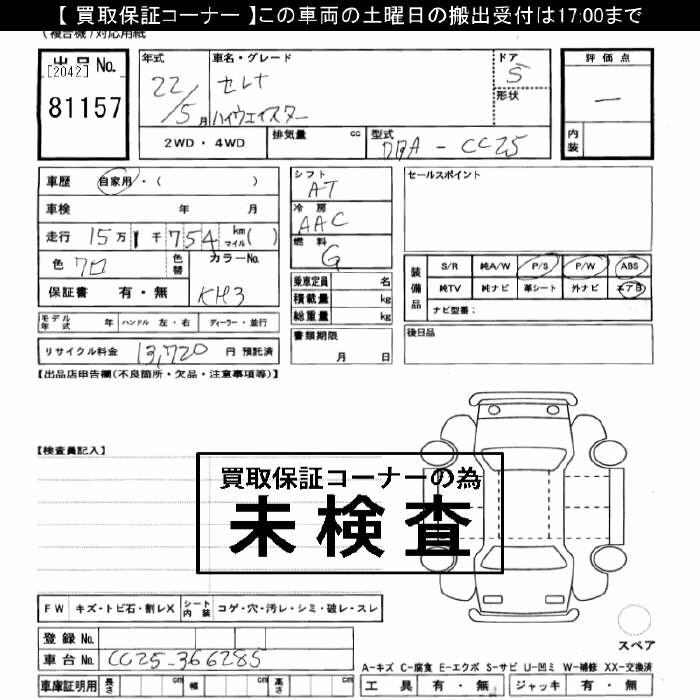 【 買取保証コーナー 】この車両の土曜日の搬出受付は17:00まで
(複合機)対応用紙
出品 No.
[2042]
81157
年式 車名・グレード ドア
22 / 5 月 セレナ 5
ハイウェイスター 形状
2WD・4WD 排気量 cc 型式 DBA - CC25
評価点
—
内装
車歴 自家用・( )
車検 年 月
走行 15万 1千 754 km マイル ( )
色 クロ 色替 カラーNo.
保証書 有・無 KH3
モデル年式 年 ハンドル 左・右 ディーラー・並行
リサイクル料金 13,720 円 預託済
シフト
AT
冷房
AAC
燃料
G
乗車定員 名
積載量 kg
総重量 kg
書類期限
月 日
セールスポイント
装備品 S/R 純A/W P/S P/W ABS
純TV 純ナビ 革シート 外ナビ エアB
ナビ型番:
後日品
【出品店申告欄(不良箇所・欠品・注意事項等)】
【検査員記入】
買取保証コーナーの為
未検査
FW キズ・トビ石・割レX シート内装 コゲ・穴・汚レ・シミ・破レ・スレ
登録 No.
車台 No. CC25-366285
車庫証明用 長さ cm 幅 cm 高さ cm
スペア
A-キズ C-腐食 E-エクボ S-サビ U-凹ミ W-補修 XX-交換済
工具 有・無 ジャッキ 有・無